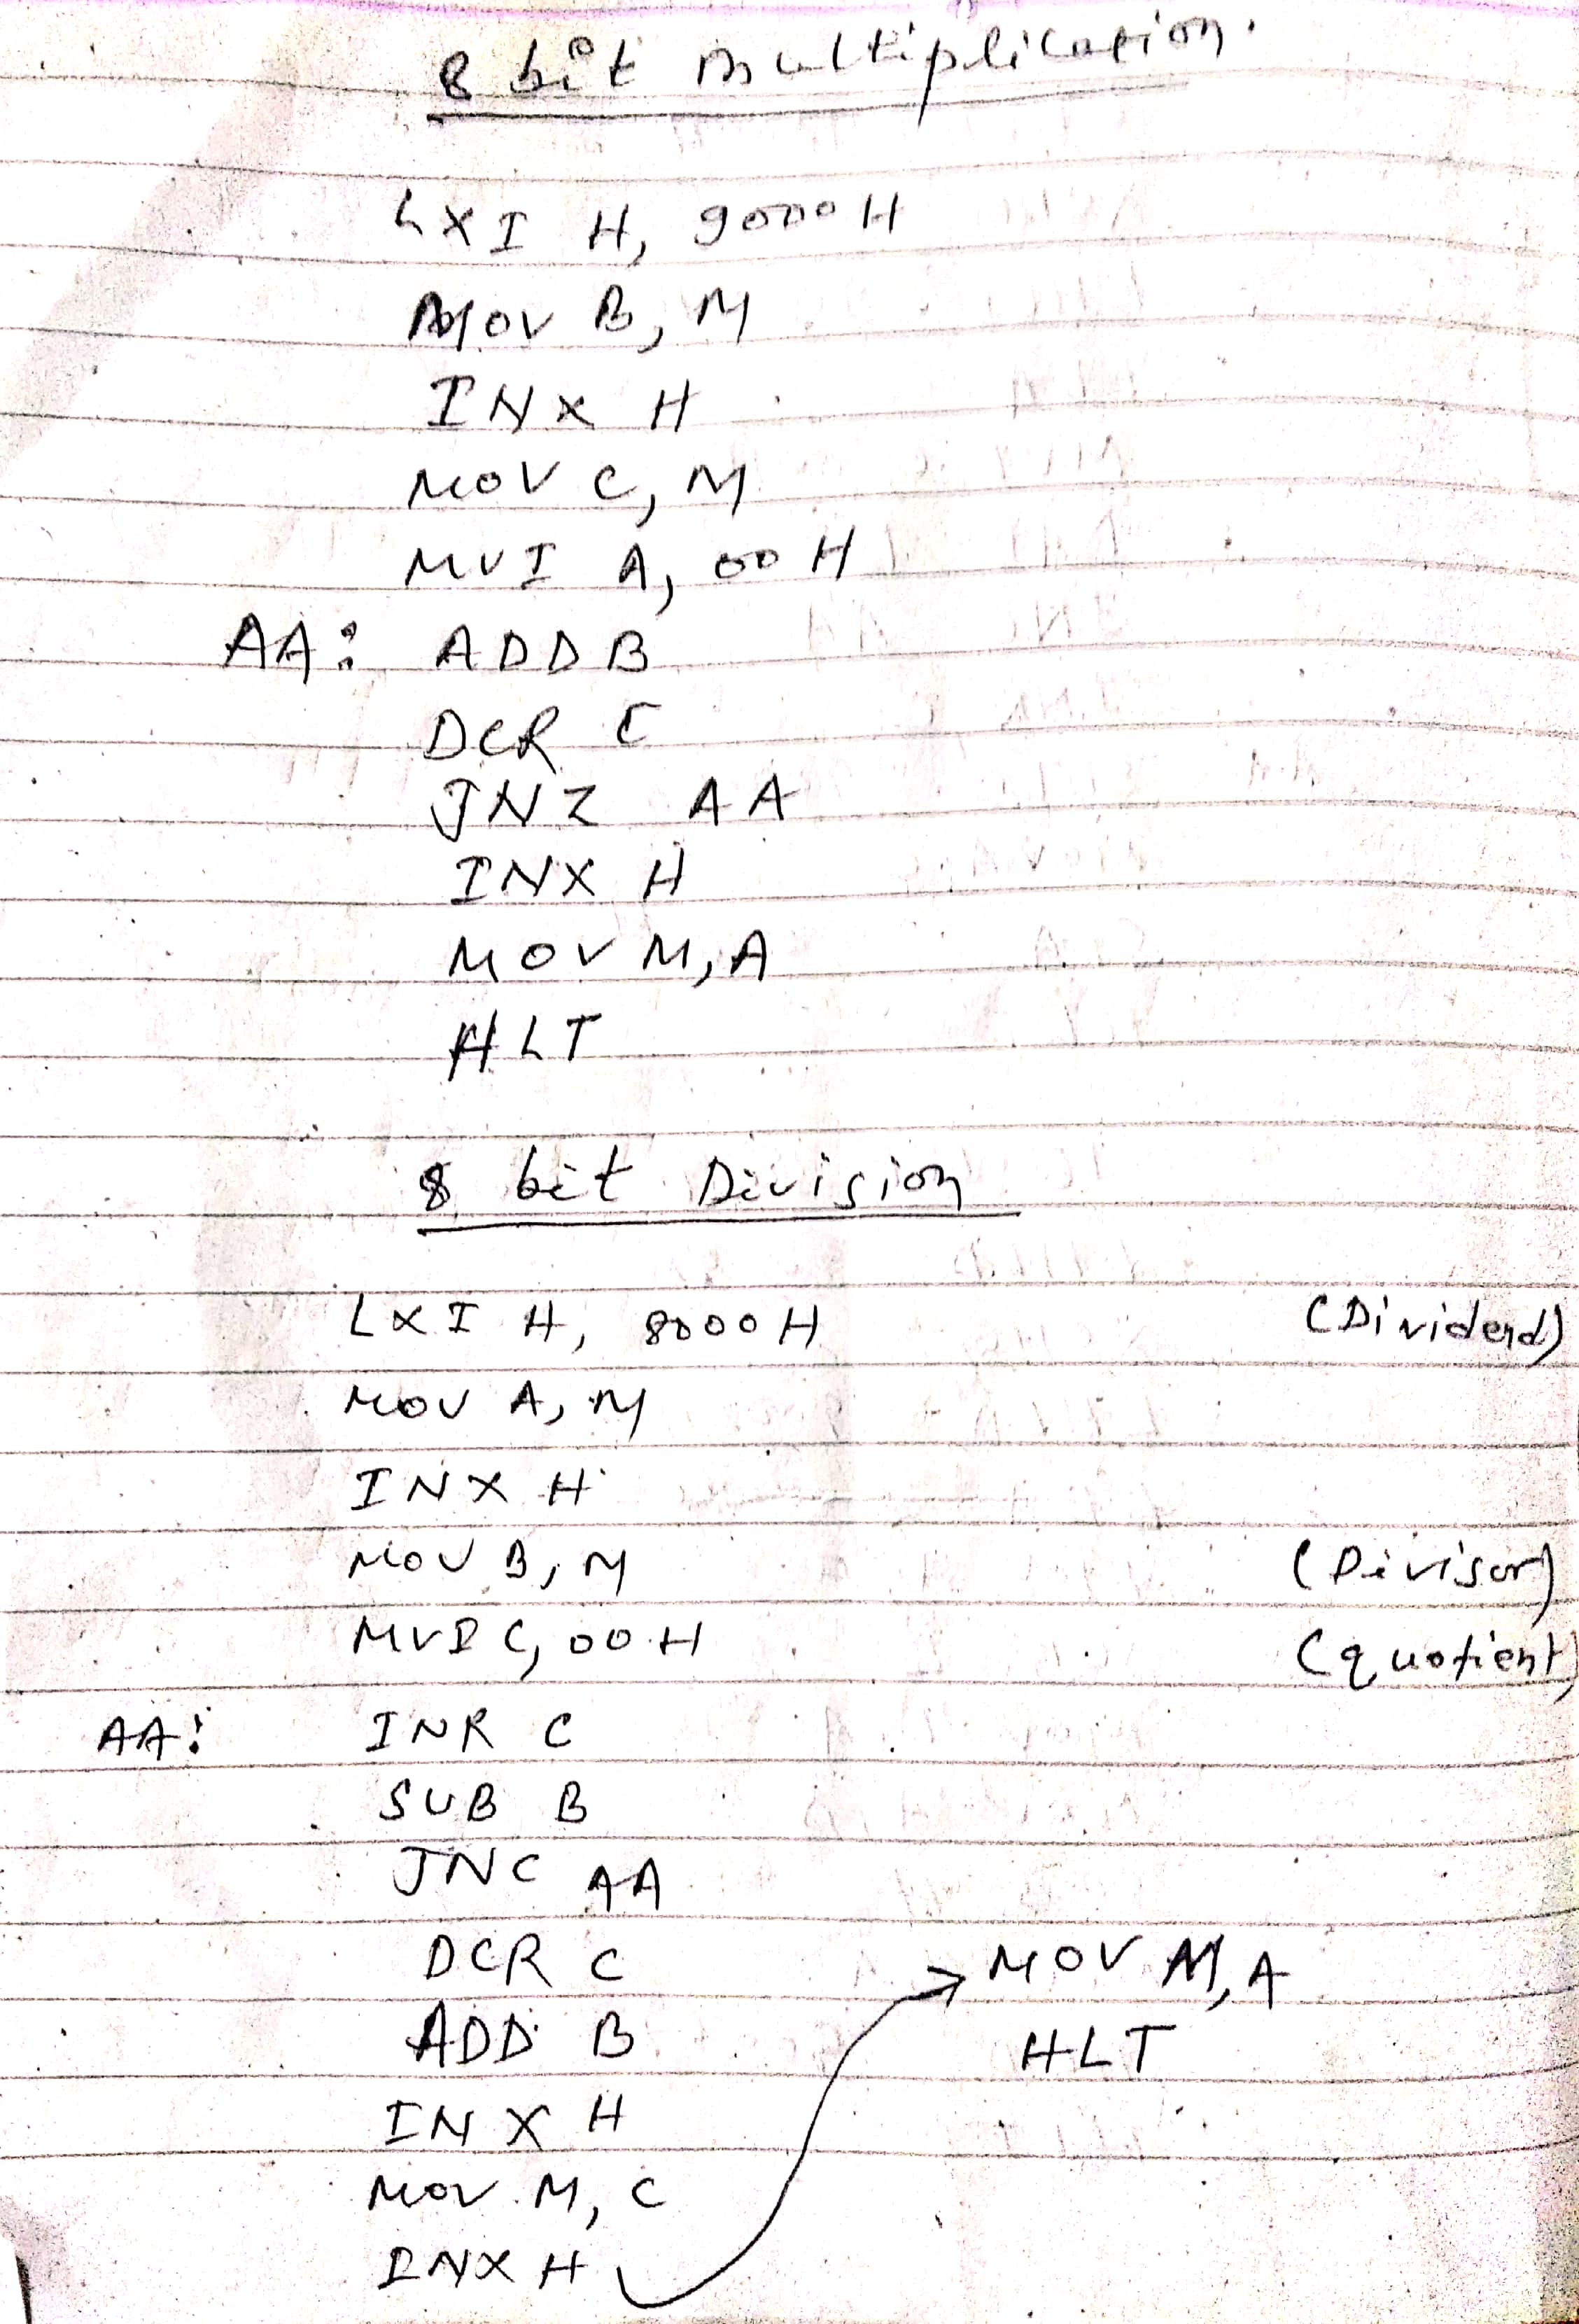 8 bit Multiplication.
LXI H, 9000H
MOV B, M
INX H
MOV C, M
MVI A, 00H
AA: ADD B
DCR C
JNZ AA
INX H
MOV M, A
HLT
8 bit Division
LXI H, 8000H (Dividend)
MOV A, M
INX H
MOV B, M (Divisor)
MVI C, 00H (quotient)
AA: INR C
SUB B
JNC AA
DCR C
ADD B
INX H
MOV M, C
INX H
→ MOV M, A
HLT